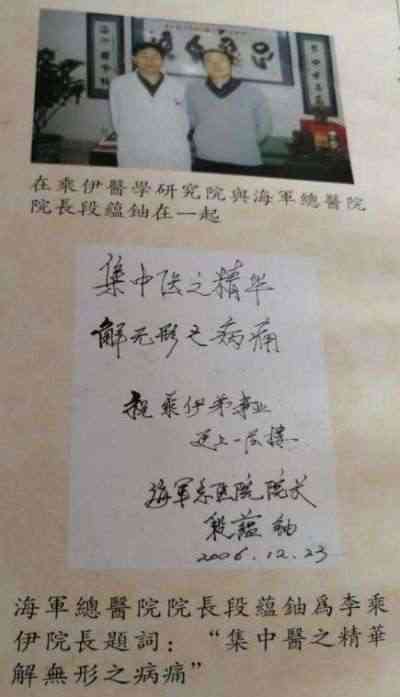 在乘伊醫學研究院與海軍總醫院
院長段蘊鈾在一起
集中医之精华
解无形之病痛
祝乘伊弟事业
更上一层楼
海軍总医院院长
段蘊鈾
2006.12.23
海軍總醫院院長段蘊鈾爲李乘
伊院長題詞：“集中醫之精華
解無形之病痛”